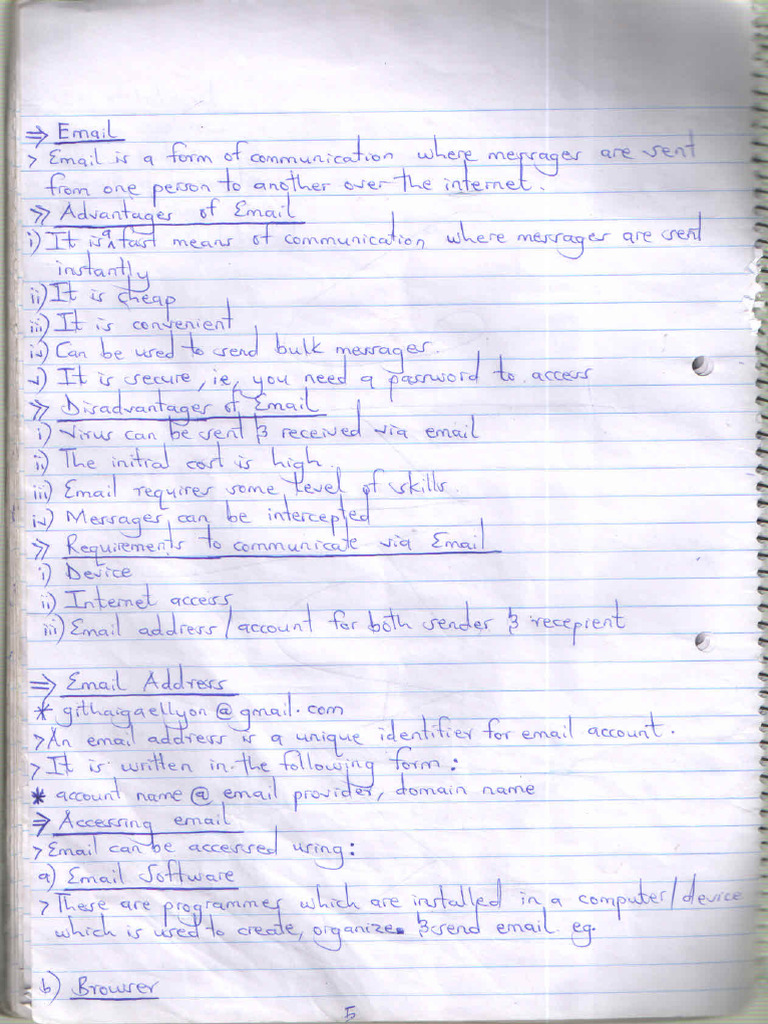 ⇒ Email
> Email is a form of communication where messages are sent
from one person to another over the internet.
≫ Advantages of Email
i) It is a fast means of communication where messages are sent
instantly
ii) It is cheap
iii) It is convenient
iv) Can be used to send bulk messages.
v) It is secure, ie, you need a password to access
≫ Disadvantages of Email
i) Virus can be sent & received via email
ii) The initial cost is high.
iii) Email requires some level of skills.
iv) Messages can be intercepted
≫ Requirements to communicate via Email
i) Device
ii) Internet access
iii) Email address/account for both sender & recepient
⇒ Email Address
* githaigaellyon@gmail.com
> An email address is a unique identifier for email account.
> It is written in the following form:
* account name @ email provider, domain name
⇒ Accessing email
> Email can be accessed using:
a) Email Software
> These are programmes which are installed in a computer/device
which is used to create, organize & send email. eg.
b) Browser
5